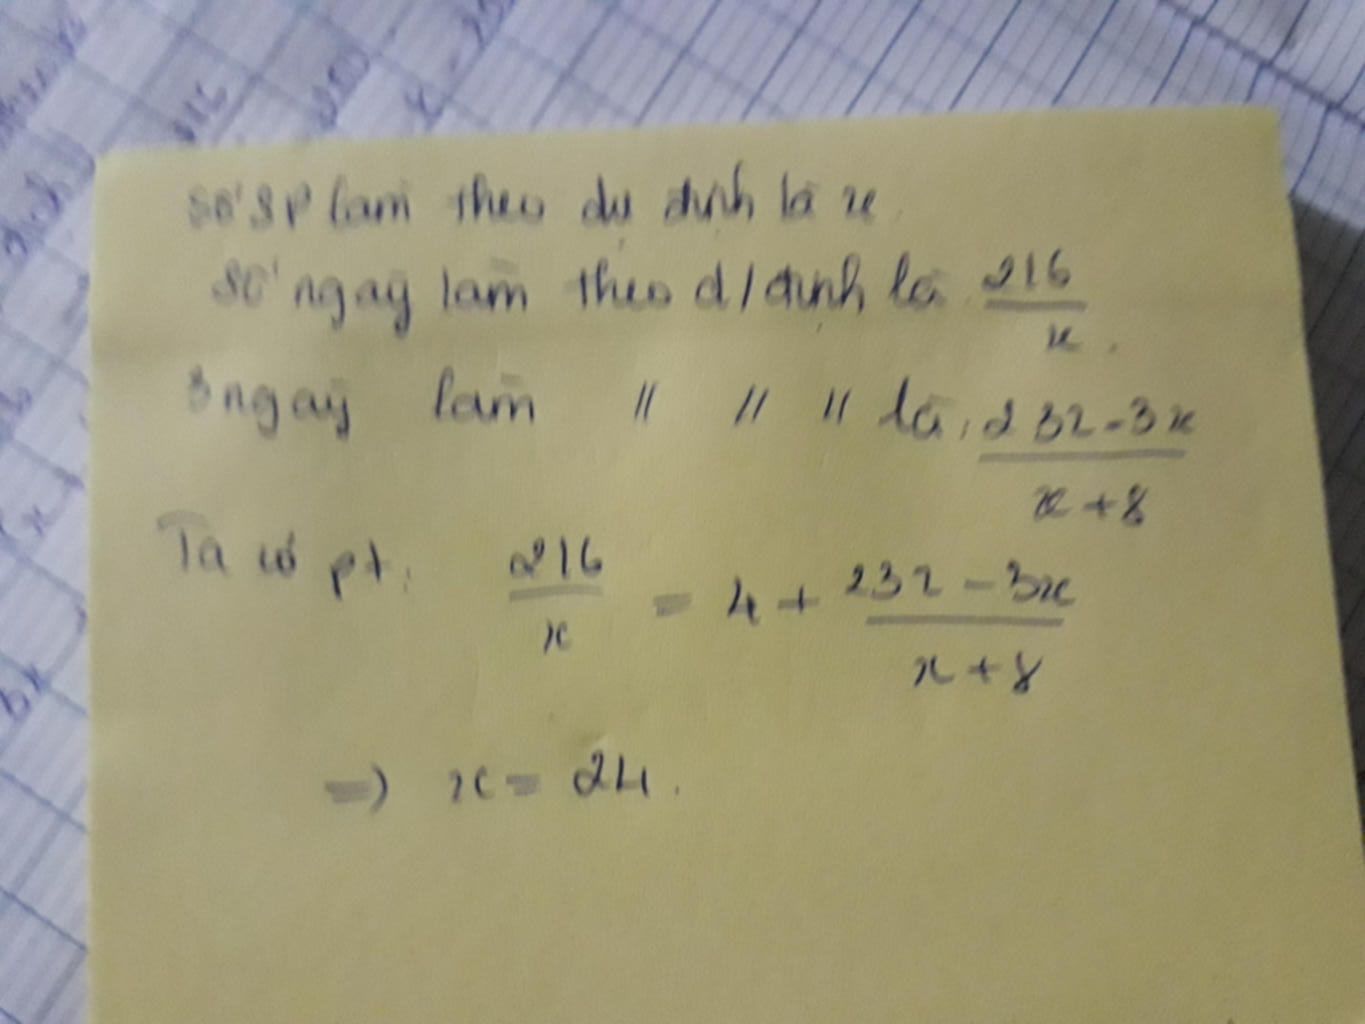 số SP làm theo dự định là x.
số ngày làm theo d/định là 216/x.
3 ngày làm " " " là, 232-3x/x+8
Ta có pt: 216/x = 4 + 232-3x/x+8
=) x = 24.